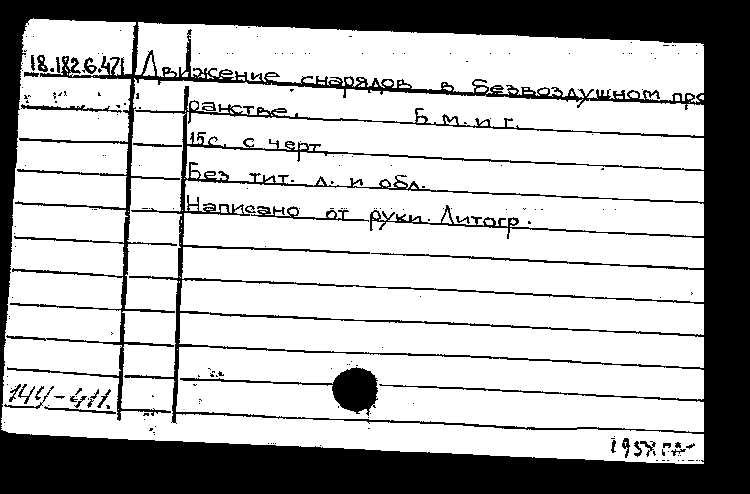 18.182.6.471 Движение снарядов в безвоздушном про
ранстве. Б.м. и г.
15с. с черт.
Без тит. л. и обл.
Написано от руки. Литогр.
144-411.